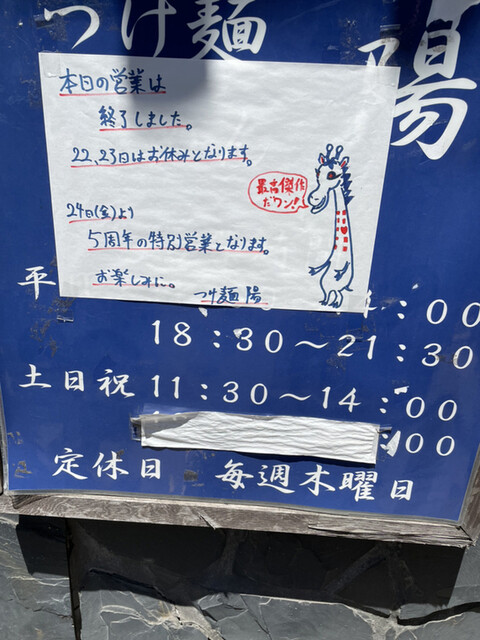 つけ麺 陽
本日の営業は
終了しました。
22、23日はお休みとなります。
24日(金)より
5周年の特別営業となります。
お楽しみに。
つけ麺 陽
最高傑作
だワン!
平
:00
18:30～21:30
土日祝 11:30～14:00
:00
定休日 毎週木曜日